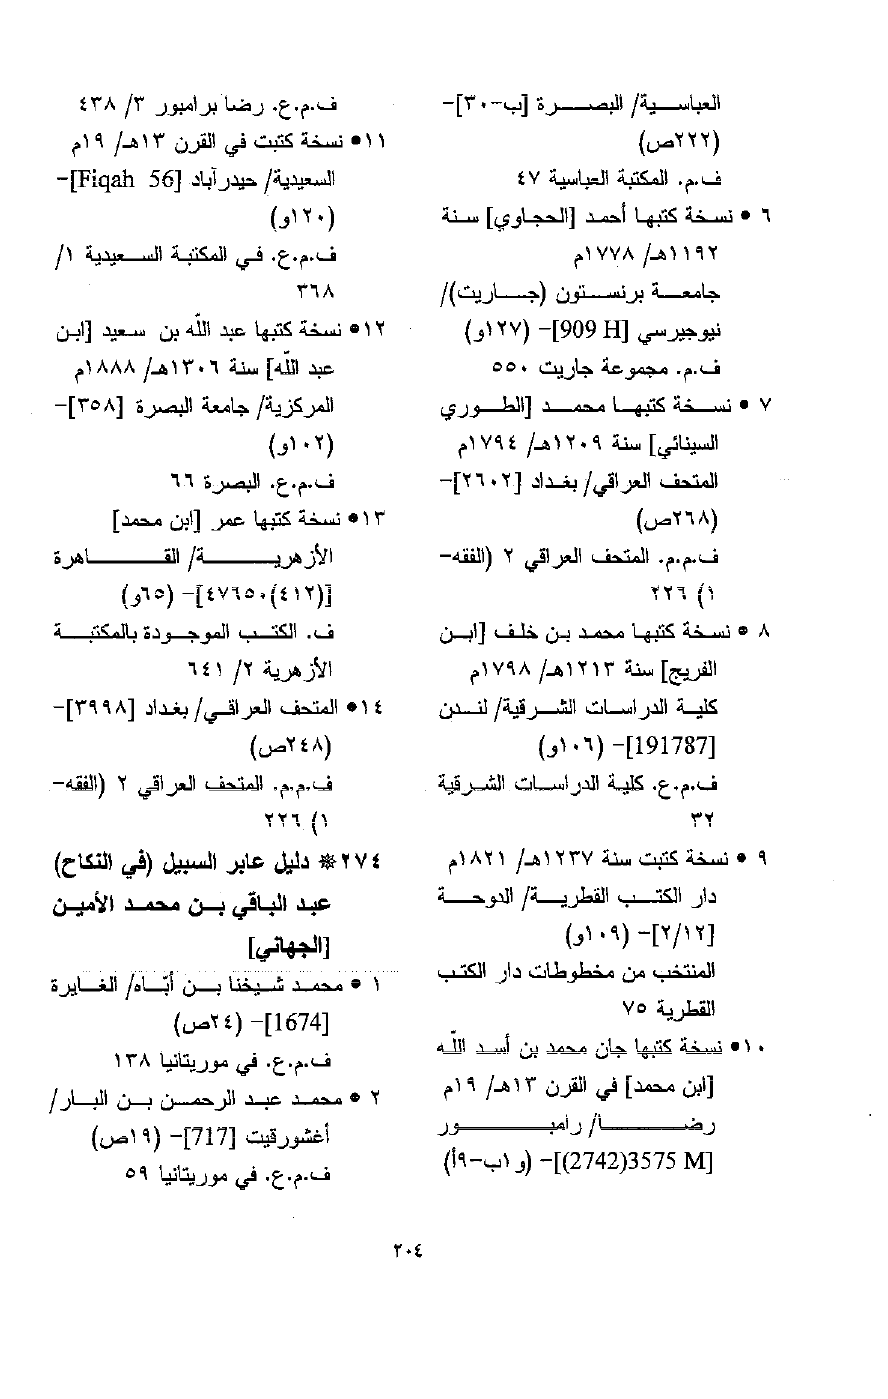 العباسية/ البصرة [ب-٣٠]-
(٢٢٢ص)
ف.م. المكتبة العباسية ٤٧
٦ • نسخة كتبها أحمد [الحجاوي] سنة
١١٩٢هـ/ ١٧٧٨م
جامعة برنستون (جاريت)/
نيوجيرسي [909 H]- (١٢٧و)
ف.م. مجموعة جاريت ٥٥٠
٧ • نسخة كتبها محمد [الطوري
السينائي] سنة ١٢٠٩هـ/ ١٧٩٤م
المتحف العراقي/ بغداد [٢٦٠٢]-
(٢٦٨ص)
ف.م.م. المتحف العراقي ٢ (الفقه-
١) ٢٢٦
٨ • نسخة كتبها محمد بن خلف [ابن
الفريج] سنة ١٢١٣هـ/ ١٧٩٨م
كلية الدراسات الشرقية/ لندن
[191787]- (١٠٦و)
ف.م.ع. كلية الدراسات الشرقية
٣٢
٩ • نسخة كتبت سنة ١٢٣٧هـ/ ١٨٢١م
دار الكتب القطرية/ الدوحة
[٢/١٢]- (١٠٩و)
المنتخب من مخطوطات دار الكتب
القطرية ٧٥
١٠• نسخة كتبها جان محمد بن أسد اللّه
[ابن محمد] في القرن ١٣هـ/ ١٩م
رضا/ رامبور
[3575 M(2742)]- (و١ب-٩أ)
ف.م.ع. رضا برامبور ٣/ ٤٣٨
١١• نسخة كتبت في القرن ١٣هـ/ ١٩م
السعيدية/ حيدرآباد [Fiqah 56]-
(١٢٠و)
ف.م.ع. في المكتبة السعيدية ١/
٣٦٨
١٢• نسخة كتبها عبد اللّه بن سعيد [ابن
عبد اللّه] سنة ١٣٠٦هـ/ ١٨٨٨م
المركزية/ جامعة البصرة [٣٥٨]-
(١٠٢و)
ف.م.ع. البصرة ٦٦
١٣• نسخة كتبها عمر [ابن محمد]
الأزهرية/ القاهرة
[(٤١٢)٤٧٦٥٠]- (٦٥و)
ف. الكتب الموجودة بالمكتبة
الأزهرية ٢/ ٦٤١
١٤• المتحف العراقي/ بغداد [٣٩٩٨]-
(٢٤٨ص)
ف.م.م. المتحف العراقي ٢ (الفقه-
١) ٢٢٦
٢٧٤❊ دليل عابر السبيل (في النكاح)
عبد الباقي بن محمد الأمين
[الجهاني]
١ • محمد شيخنا بن أبّاه/ الغايرة
[1674]- (٢٤ص)
ف.م.ع. في موريتانيا ١٣٨
٢ • محمد عبد الرحمن بن البار/
أغشورقيت [717]- (١٩ص)
ف.م.ع. في موريتانيا ٥٩
٢٠٤